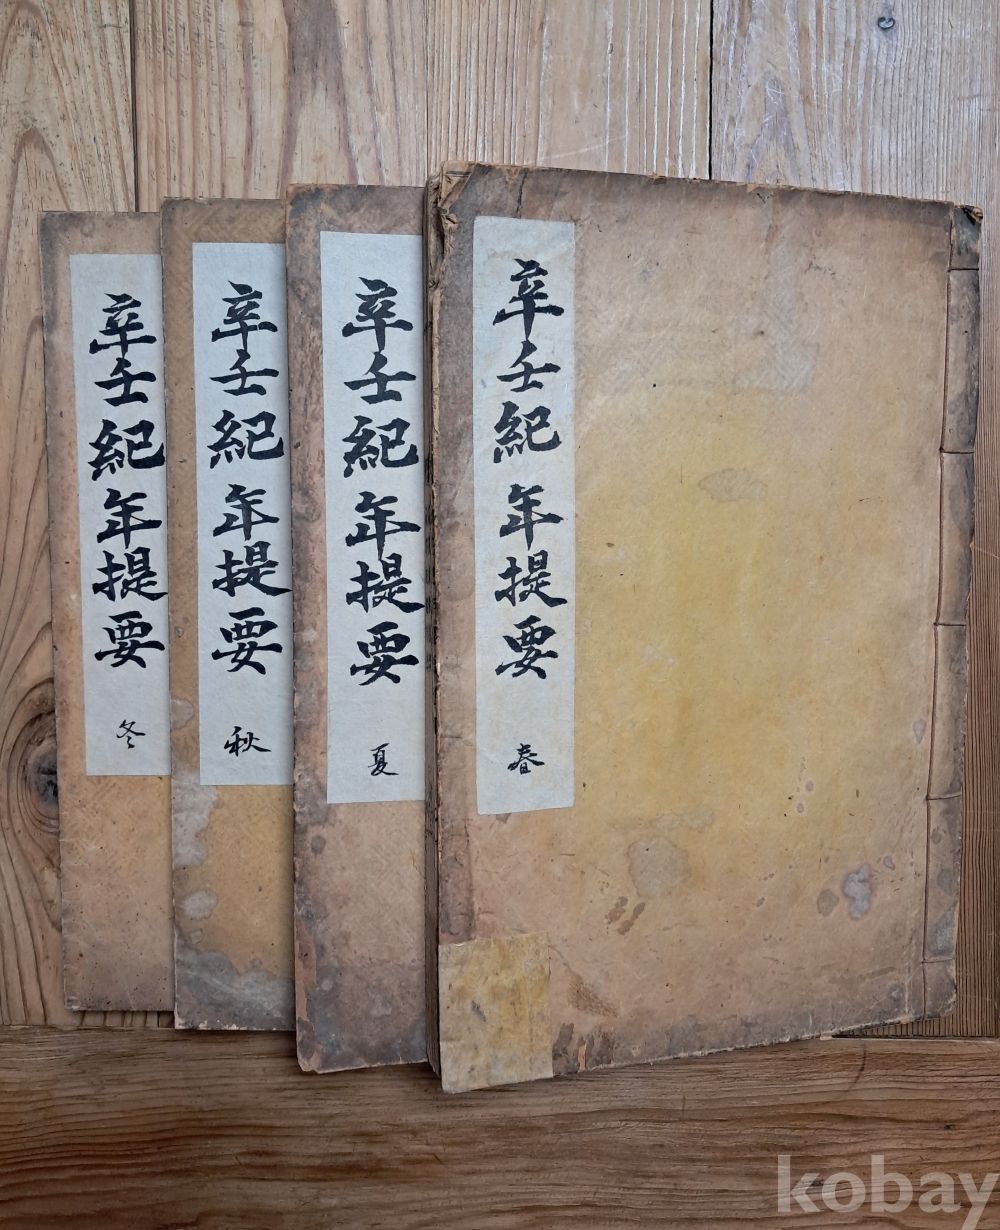 辛壬紀年提要 春
辛壬紀年提要 夏
辛壬紀年提要 秋
辛壬紀年提要 冬
kobay